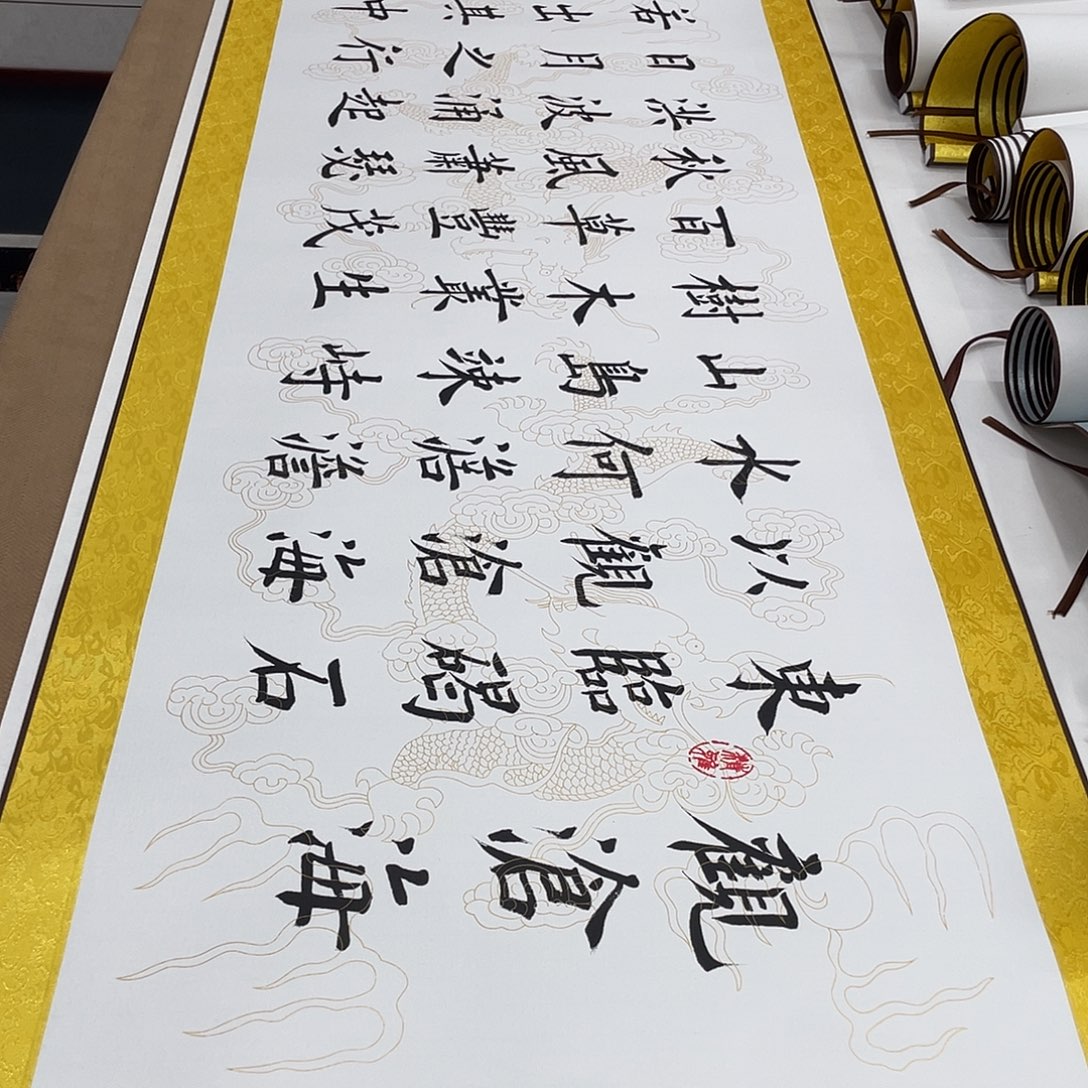 觀滄海
東臨碣石
以觀滄海
水何澹澹
山島竦峙
樹木叢生
百草豐茂
秋風蕭瑟
洪波涌起
日月之行
若出其中